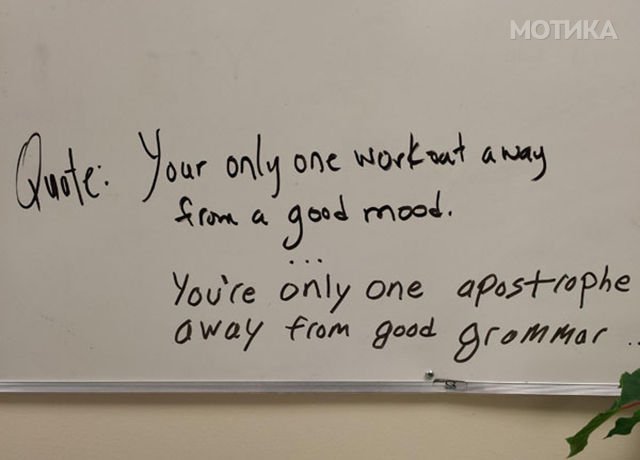 МОТИКА
Quote: Your only one workout away
from a good mood.
...
You're only one apostrophe
away from good grammar ..